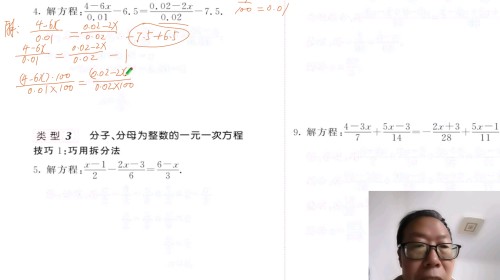 4. 解方程:\frac{4-6x}{0.01}-6.5=\frac{0.02-2x}{0.02}-7.5.
\frac{1}{100}=0.01
解: \frac{4-6x}{0.01}=\frac{0.02-2x}{0.02}-7.5+6.5
\frac{4-6x}{0.01}=\frac{0.02-2x}{0.02}-1
\frac{(4-6x)·100}{0.01×100}=\frac{(0.02-2x)}{0.02×100}
类型 3 分子、分母为整数的一元一次方程
技巧 1:巧用拆分法
5. 解方程:\frac{x-1}{2}-\frac{2x-3}{6}=\frac{6-x}{3}.
9. 解方程:\frac{4-3x}{7}+\frac{5x-3}{14}=-\frac{2x+3}{28}+\frac{5x-1}{11}